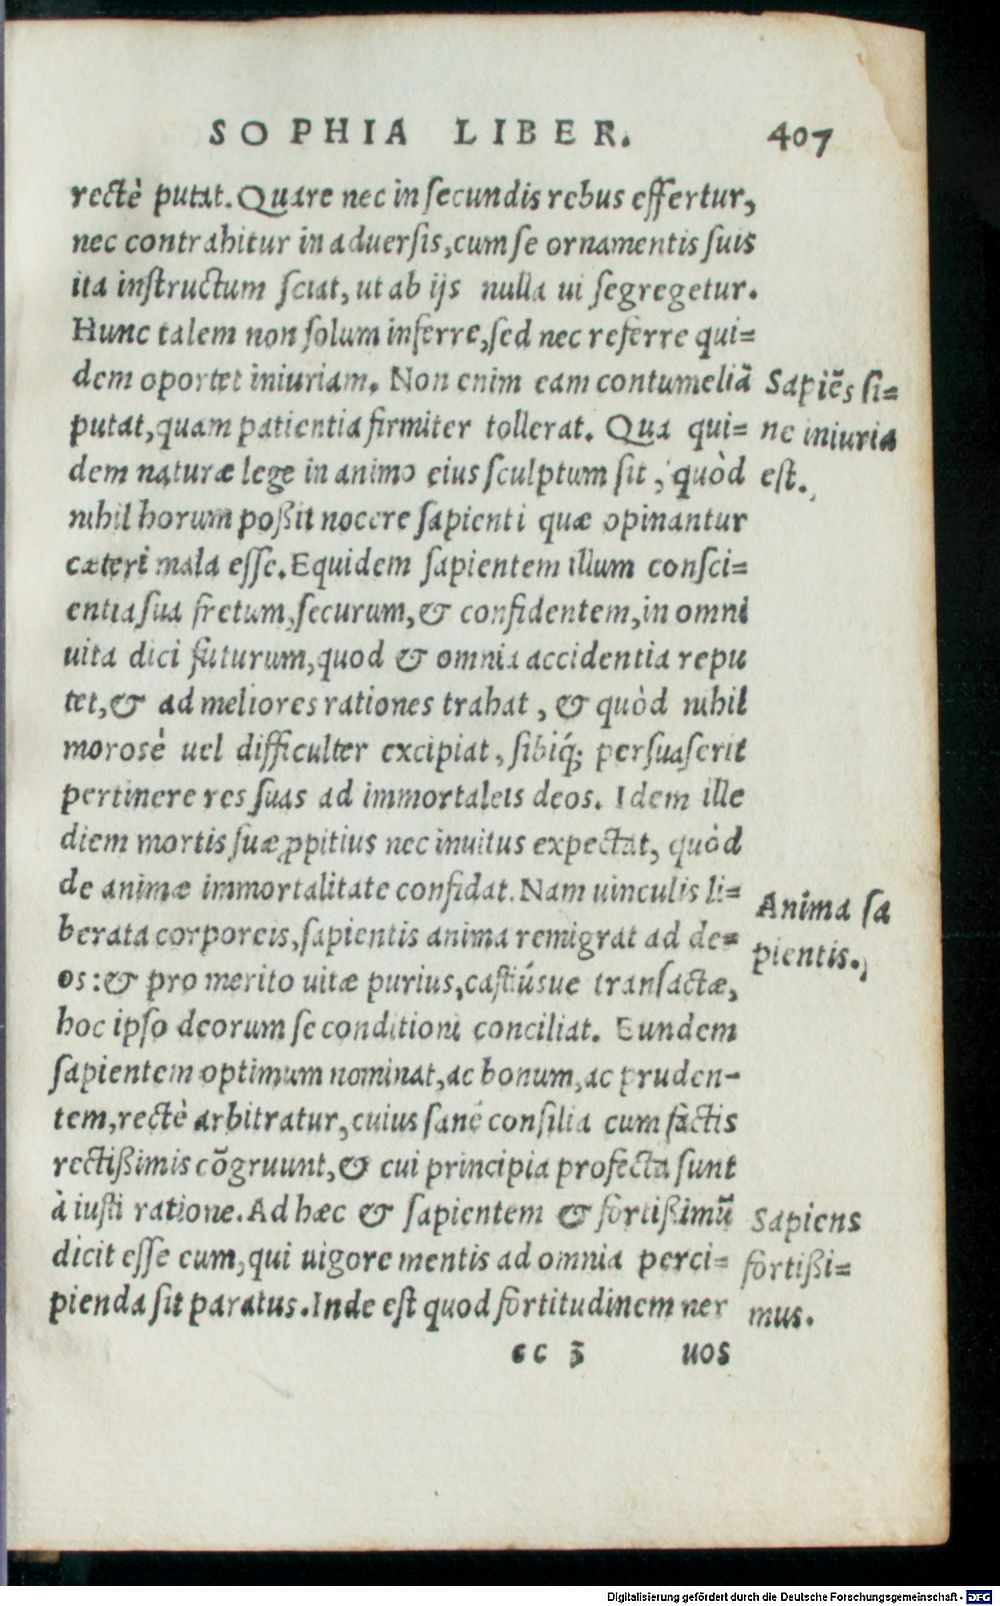 SOPHIA LIBER. 407
rectè putat. Quare nec in secundis rebus effertur,
nec contrahitur in aduersis, cum se ornamentis suis
ita instructum sciat, ut ab ijs nulla ui segregetur.
Hunc talem non solum inferre, sed nec referre qui=
dem oportet iniuriam. Non enim eam contumeliā
putat, quam patientia firmiter tollerat. Qua qui=
dem naturæ lege in animo eius sculptum sit, quòd
nihil horum poßit nocere sapienti quæ opinantur
cæteri mala esse. Equidem sapientem illum consci=
entia sua fretum, securum, & confidentem, in omni
uita dici futurum, quod & omnia accidentia repu
tet, & ad meliores rationes trahat, & quòd nihil
morosè uel difficulter excipiat, sibiq́; persuaserit
pertinere res suas ad immortaleis deos. Idem ille
diem mortis suæ ꝓpitius nec inuitus expectat, quòd
de animæ immortalitate confidat. Nam uinculis li=
berata corporeis, sapientis anima remigrat ad de=
os: & pro merito uitæ purius, castiúsue transactæ,
hoc ipso deorum se conditioni conciliat. Eundem
sapientem optimum nominat, ac bonum, ac pruden-
tem, rectè arbitratur, cuius sanè consilia cum factis
rectißimis cōgruunt, & cui principia profecta sunt
à iusti ratione. Ad hæc & sapientem & fortißimū
dicit esse eum, qui uigore mentis ad omnia perci=
pienda sit paratus. Inde est quod fortitudinem ner
cc 3 uos
Sapiēs si=
ne iniuria
est.
Anima sa
pientis.
Sapiens
fortißi=
mus.
Digitalisierung gefördert durch die Deutsche Forschungsgemeinschaft - DFG